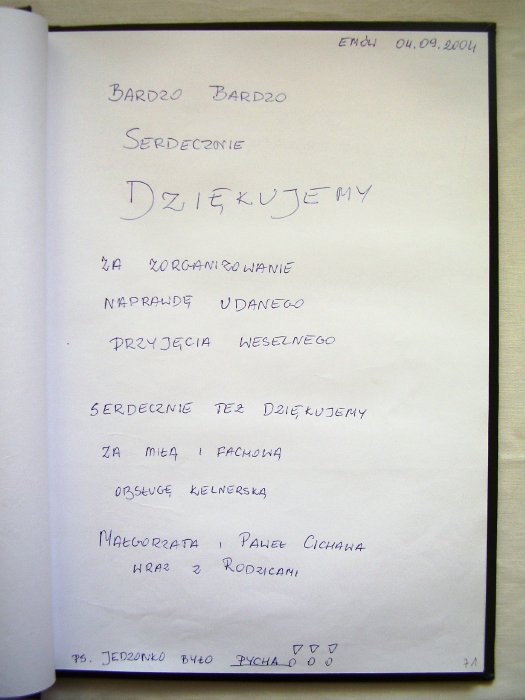 EMÓW 04.09.2004
BARDZO BARDZO
SERDECZNIE
DZIĘKUJEMY
ZA ZORGANIZOWANIE
NAPRAWDĘ UDANEGO
PRZYJĘCIA WESELNEGO
SERDECZNIE TEŻ DZIĘKUJEMY
ZA MIŁĄ I FACHOWĄ
OBSŁUGĘ KELNERSKĄ
MAŁGORZATA I PAWEŁ CICHAWA
WRAZ Z RODZICAMI
PS. JEDZONKO BYŁO PYCHA!!!
71